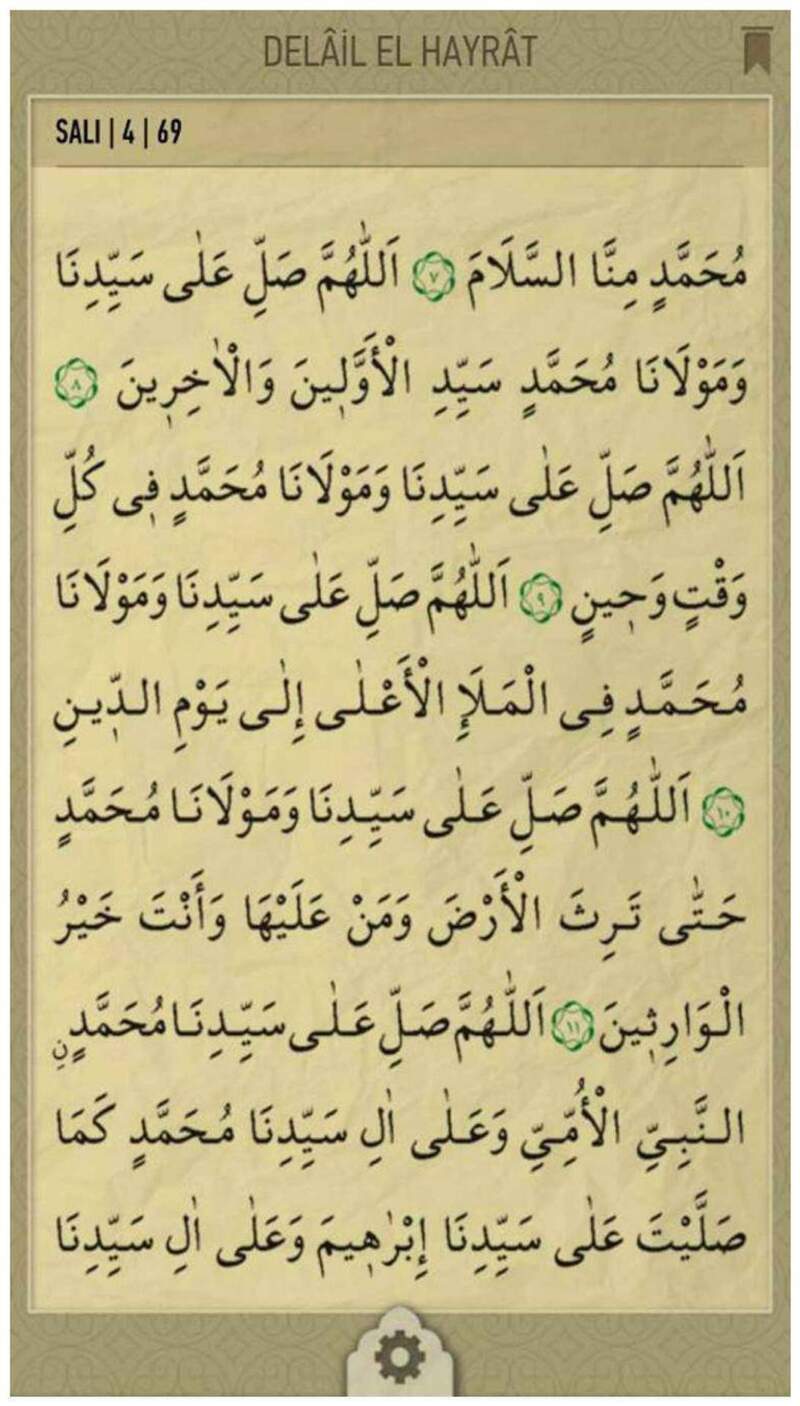 DELÂİL EL HAYRÂT
SALI | 4 | 69
مُحَمَّدٍ مِنَّا السَّلَامَ ٧ اَللّٰهُمَّ صَلِّ عَلٰى سَيِّدِنَا
وَمَوْلَانَا مُحَمَّدٍ سَيِّدِ الْأَوَّلِينَ وَالْاٰخِرِينَ ٨
اَللّٰهُمَّ صَلِّ عَلٰى سَيِّدِنَا وَمَوْلَانَا مُحَمَّدٍ فِى كُلِّ
وَقْتٍ وَحِينٍ ٩ اَللّٰهُمَّ صَلِّ عَلٰى سَيِّدِنَا وَمَوْلَانَا
مُحَمَّدٍ فِى الْمَلَإِ الْأَعْلٰى إِلٰى يَوْمِ الدِّينِ
١٠ اَللّٰهُمَّ صَلِّ عَلٰى سَيِّدِنَا وَمَوْلَانَا مُحَمَّدٍ
حَتّٰى تَرِثَ الْأَرْضَ وَمَنْ عَلَيْهَا وَأَنْتَ خَيْرُ
الْوَارِثِينَ ١١ اَللّٰهُمَّ صَلِّ عَلٰى سَيِّدِنَا مُحَمَّدٍ نِ
النَّبِيِّ الْأُمِّيِّ وَعَلٰى اٰلِ سَيِّدِنَا مُحَمَّدٍ كَمَا
صَلَّيْتَ عَلٰى سَيِّدِنَا إِبْرٰهِيمَ وَعَلٰى اٰلِ سَيِّدِنَا